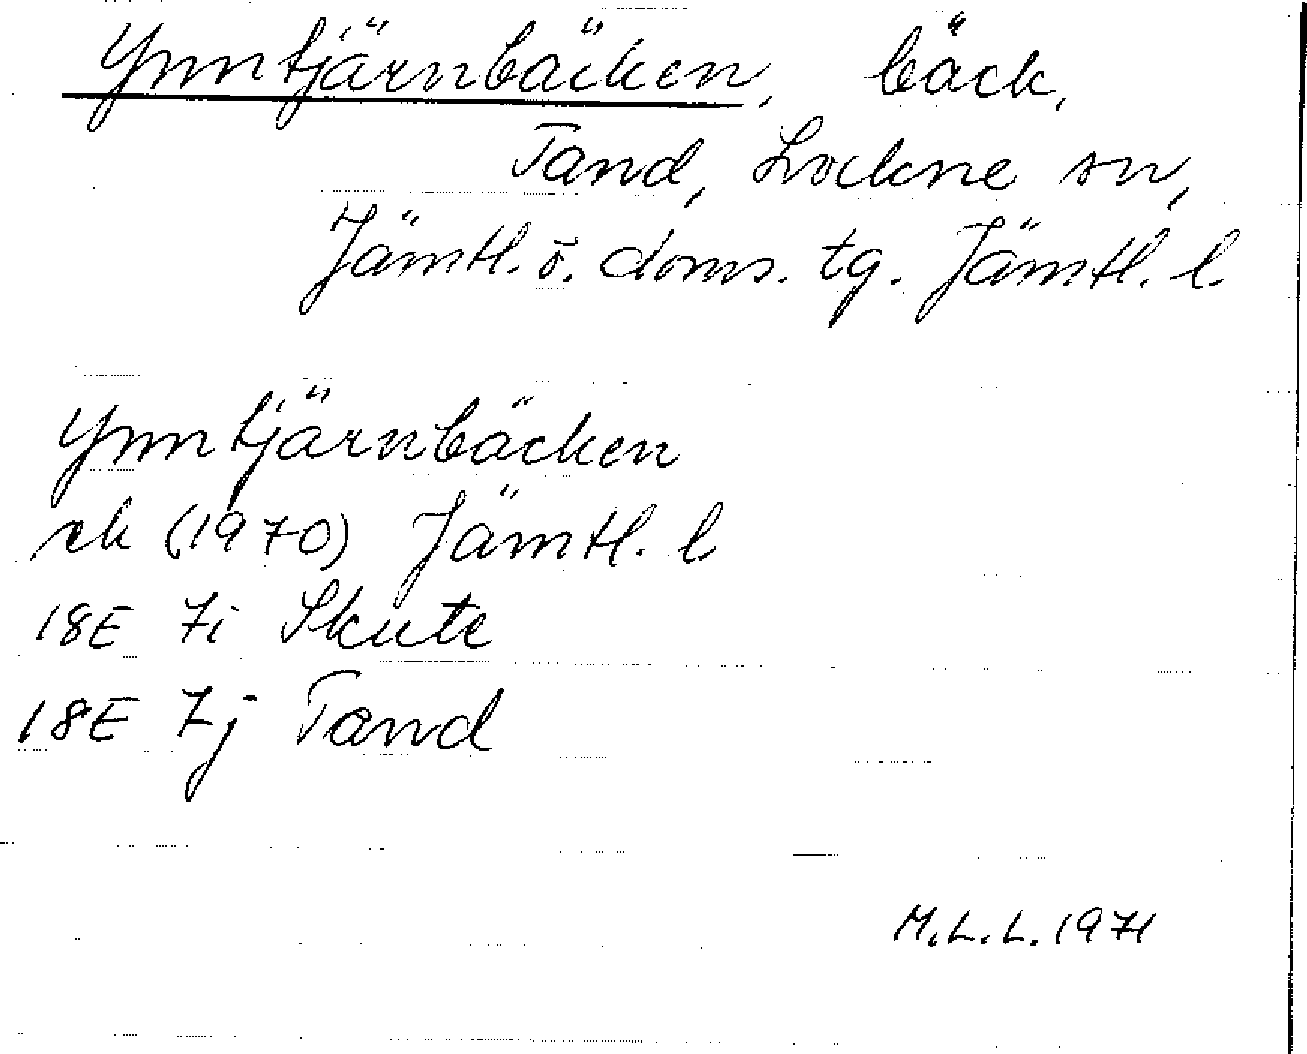 Ynntjärnbäcken, bäck,
Tand, Lockne sn,
Jämtl. ö. doms. tg. Jämtl. l.
Ynntjärnbäcken
ek (1970) Jämtl. l
18E 7i Skute
18E 7j Tand
M.L.L. 1971